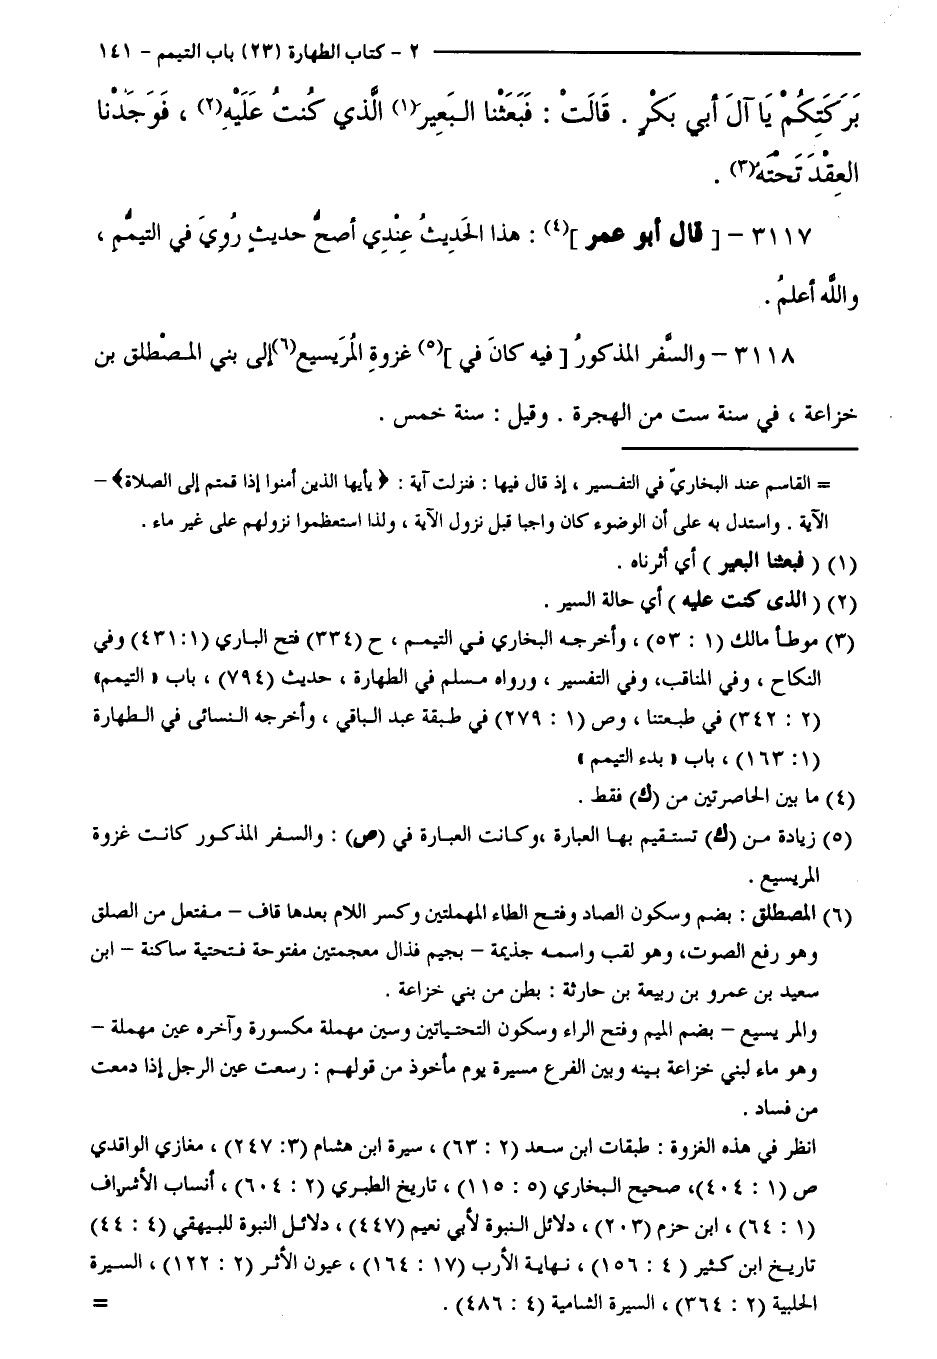 ٢ - كتاب الطهارة (٢٣) باب التيمم - ١٤١
بَرَكَتِكُمْ يَا آلَ أبي بَكْرٍ . قَالَتْ : فَبَعَثْنا البَعِيرَ(١) الَّذي كُنتُ عَلَيْهِ(٢) ، فَوَجَدْنا
العِقْدَ تَحْتَهُ(٣) .
٣١١٧ - [ قال أبو عمر ](٤) : هذا الحَديثُ عِنْدي أصحُّ حديثٍ رُوِيَ في التيمُّمِ ،
واللَّه أعلمُ .
٣١١٨ - والسَّفر المذكورُ [ فيه كانَ في ](٥) غزوةِ المُرَيسيع(٦)إلى بني المصْطلق بن
خزاعة ، في سنة ست من الهجرة . وقيل : سنة خمس .
= القاسم عند البخاريّ في التفسير ، إذ قال فيها : فنزلت آية : ﴿ يأيها الذين أمنوا إذا قمتم إلى الصلاة﴾ -
الآية . واستدل به على أن الوضوء كان واجبا قبل نزول الآية ، ولذا استعظموا نزولهم على غير ماء .
(١) ( فبعثنا البعير ) أي أثرناه .
(٢) ( الذى كنت عليه ) أي حالة السير .
(٣) موطأ مالك (١ : ٥٣) ، وأخرجه البخاري في التيمم ، ح (٣٣٤) فتح الباري (١:٤٣١) وفي
النكاح ، وفي المناقب، وفي التفسير ، ورواه مسلم في الطهارة ، حديث (٧٩٤) ، باب « التيمم»
(٢ : ٣٤٢) في طبعتنا ، وص (١ : ٢٧٩) في طبقة عبد الباقي ، وأخرجه النسائى في الطهارة
(١: ١٦٣) ، باب « بدء التيمم »
(٤) ما بين الحاصرتين من (ك) فقط .
(٥) زيادة من (ك) تستقيم بها العبارة ،وكانت العبارة في (ص) : والسفر المذكور كانت غزوة
المريسيع .
(٦) المصطلق : بضم وسكون الصاد وفتح الطاء المهملتين وكسر اللام بعدها قاف - مفتعل من الصلق
وهو رفع الصوت، وهو لقب واسمه جذيمة - بجيم فذال معجمتين مفتوحة فتحتية ساكنة - ابن
سعيد بن عمرو بن ربيعة بن حارثة : بطن من بني خزاعة .
والمر يسيع - بضم الميم وفتح الراء وسكون التحتياتين وسين مهملة مكسورة وآخره عين مهملة -
وهو ماء لبني خزاعة بينه وبين الفرع مسيرة يوم مأخوذ من قولهم : رسعت عين الرجل إذا دمعت
من فساد .
انظر في هذه الغزوة : طبقات ابن سعد (٢ : ٦٣) ، سيرة ابن هشام (٣: ٢٤٧) ، مغازي الواقدي
ص (١ : ٤٠٤)، صحيح البخاري (٥ : ١١٥) ، تاريخ الطبري (٢ : ٦٠٤) ، أنساب الأشراف
(١ : ٦٤) ، ابن حزم (٢٠٣) ، دلائل النبوة لأبي نعيم (٤٤٧) ، دلائل النبوة للبيهقي (٤ : ٤٤)
تاريخ ابن كثير ( ٤ : ١٥٦) ، نهاية الأرب (١٧ : ١٦٤) ، عيون الأثر (٢ : ١٢٢) ، السيرة
الحلبية (٢ : ٣٦٤) ، السيرة الشامية (٤ : ٤٨٦) . =